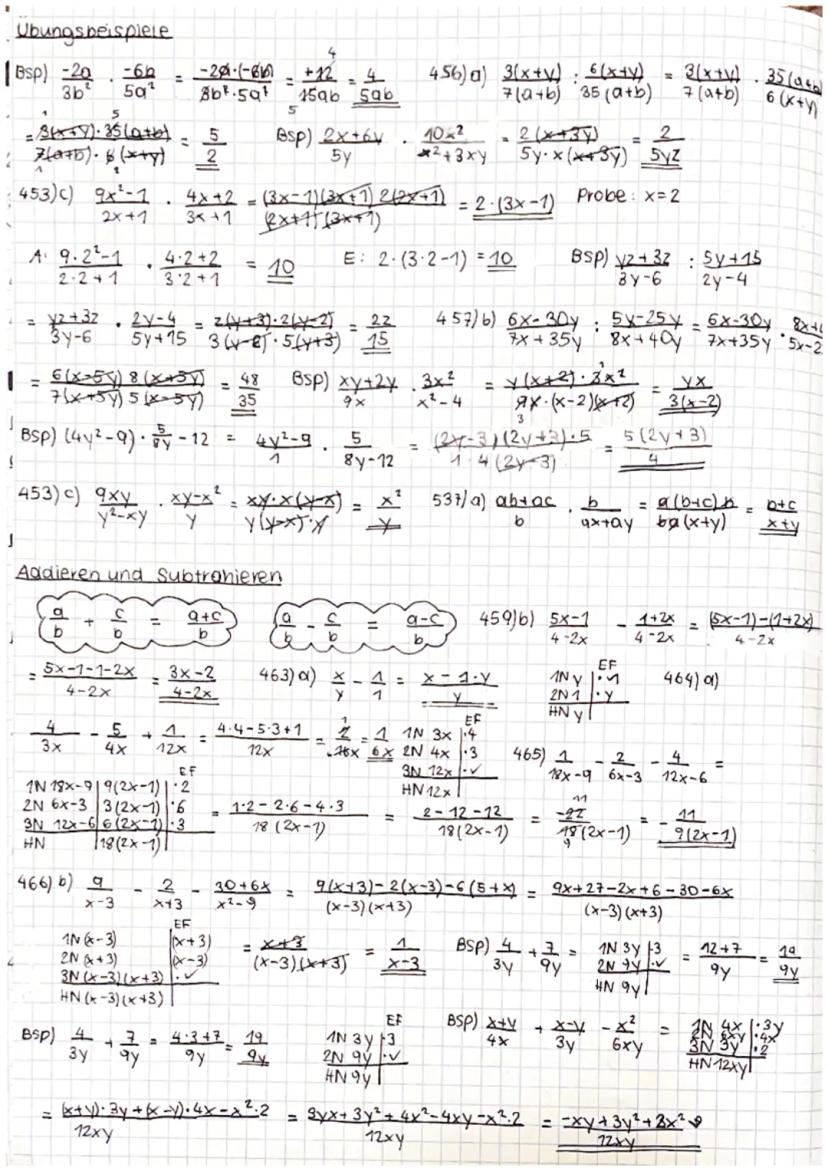 Übungsbeispiele
BSP) -2a/3b² · -6b/5a² = -2a·(-6b)/3b²·5a² = +12/15ab = 4/5ab 456) a) 3(x+y)/7(a+b) : 6(x+y)/35(a+b) = 3(x+y)/7(a+b) · 35(a+b)/6(x+y)
= 3(x+y)·35(a+b)/7(a+b)·6(x+y) = 5/2 BSP) 2x+6y/5y · 10x²/x²+3xy = 2(x+3y)/5y·x(x+3y) = 2/5yz
453) c) 9x²-1/2x+1 · 4x+2/3x+1 = (3x-1)(3x+1)2(2x+1)/(2x+1)(3x+1) = 2·(3x-1) Probe: x=2
A: 9·2²-1/2·2+1 · 4·2+2/3·2+1 = 10 E: 2·(3·2-1) = 10 BSP) yz+3z/3y-6 : 5y+15/2y-4
= yz+3z/3y-6 · 2y-4/5y+15 = z(y+3)·2(y-2)/3(y-2)·5(y+3) = 2z/15 457) b) 6x-30y/7x+35y : 5y-25y/8x+40y = 6x-30y/7x+35y
= 6(x-5y)8(x+5y)/7(x+5y)5(x-5y) = 48/35 BSP) xy+2y/9x · 3x²/x²-4 = y(x+2)·3x²/9x·(x-2)(x+2) = yx/3(x-2)
BSP) (4y²-9) · 5/8y -12 = 4y²-9/1 · 5/8y-12 = (2y-3)(2y+3)·5/1·4(2y-3) = 5(2y+3)/4
453) c) 9xy/y²-xy · xy-x²/y = xy·x(y-x)/y(y-x)·y = x²/y 537) a) ab+ac/b · b/ax+ay = a(b+c)b/ba(x+y) = b+c/x+y
Addieren und Subtrahieren
a/b + c/b = a+c/b a/b - c/b = a-c/b 459) b) 5x-1/4-2x - 1+2x/4-2x = (5x-1)-(1+2x)/4-2x
= 5x-1-1-2x/4-2x = 3x-2/4-2x 463) a) x/y - 1/1 = x-1·y/y EF 1N y | ·1 2N 1 | ·y HN y | 464) a)
4/3x - 5/4x + 1/12x = 4·4-5·3+1/12x = 2/12x = 1/6x EF 1N 3x | ·4 2N 4x | ·3 3N 12x | ·✓ HN 12x | 465) 1/18x-9 - 2/6x-3 - 4/12x-6 =
EF
1N 18x-9 | 9(2x-1) | ·2
2N 6x-3 | 3(2x-1) | ·6
3N 12x-6 | 6(2x-1) | ·3
HN | 18(2x-1) | = 1·2-2·6-4·3/18(2x-1) = 2-12-12/18(2x-1) = -22/18(2x-1) = - 11/9(2x-1)
466) b) 9/x-3 - 2/x+3 - 30+6x/x²-9 = 9(x+3)-2(x-3)-6(5+x)/(x-3)(x+3) = 9x+27-2x+6-30-6x/(x-3)(x+3)
EF
1N (x-3) | (x+3)
2N (x+3) | (x-3)
3N (x-3)(x+3) | ·✓
HN (x-3)(x+3) | = x+3/(x-3)(x+3) = 1/x-3 BSP) 4/3y + 7/9y = 1N 3y | ·3 2N 9y | ·✓ HN 9y | = 12+7/9y = 19/9y
BSP) 4/3y + 7/9y = 4·3+7/9y = 19/9y EF 1N 3y | ·3 2N 9y | ·✓ HN 9y | BSP) x+y/4x + x-y/3y - x²/6xy = 1N 4x | ·3y ·4x 3N 3y | ·2 HN 12xy |
= (x+y)·3y+(x-y)·4x-x²·2/12xy = 3yx+3y²+4x²-4xy-x²·2/12xy = -xy+3y²+2x²/12xy